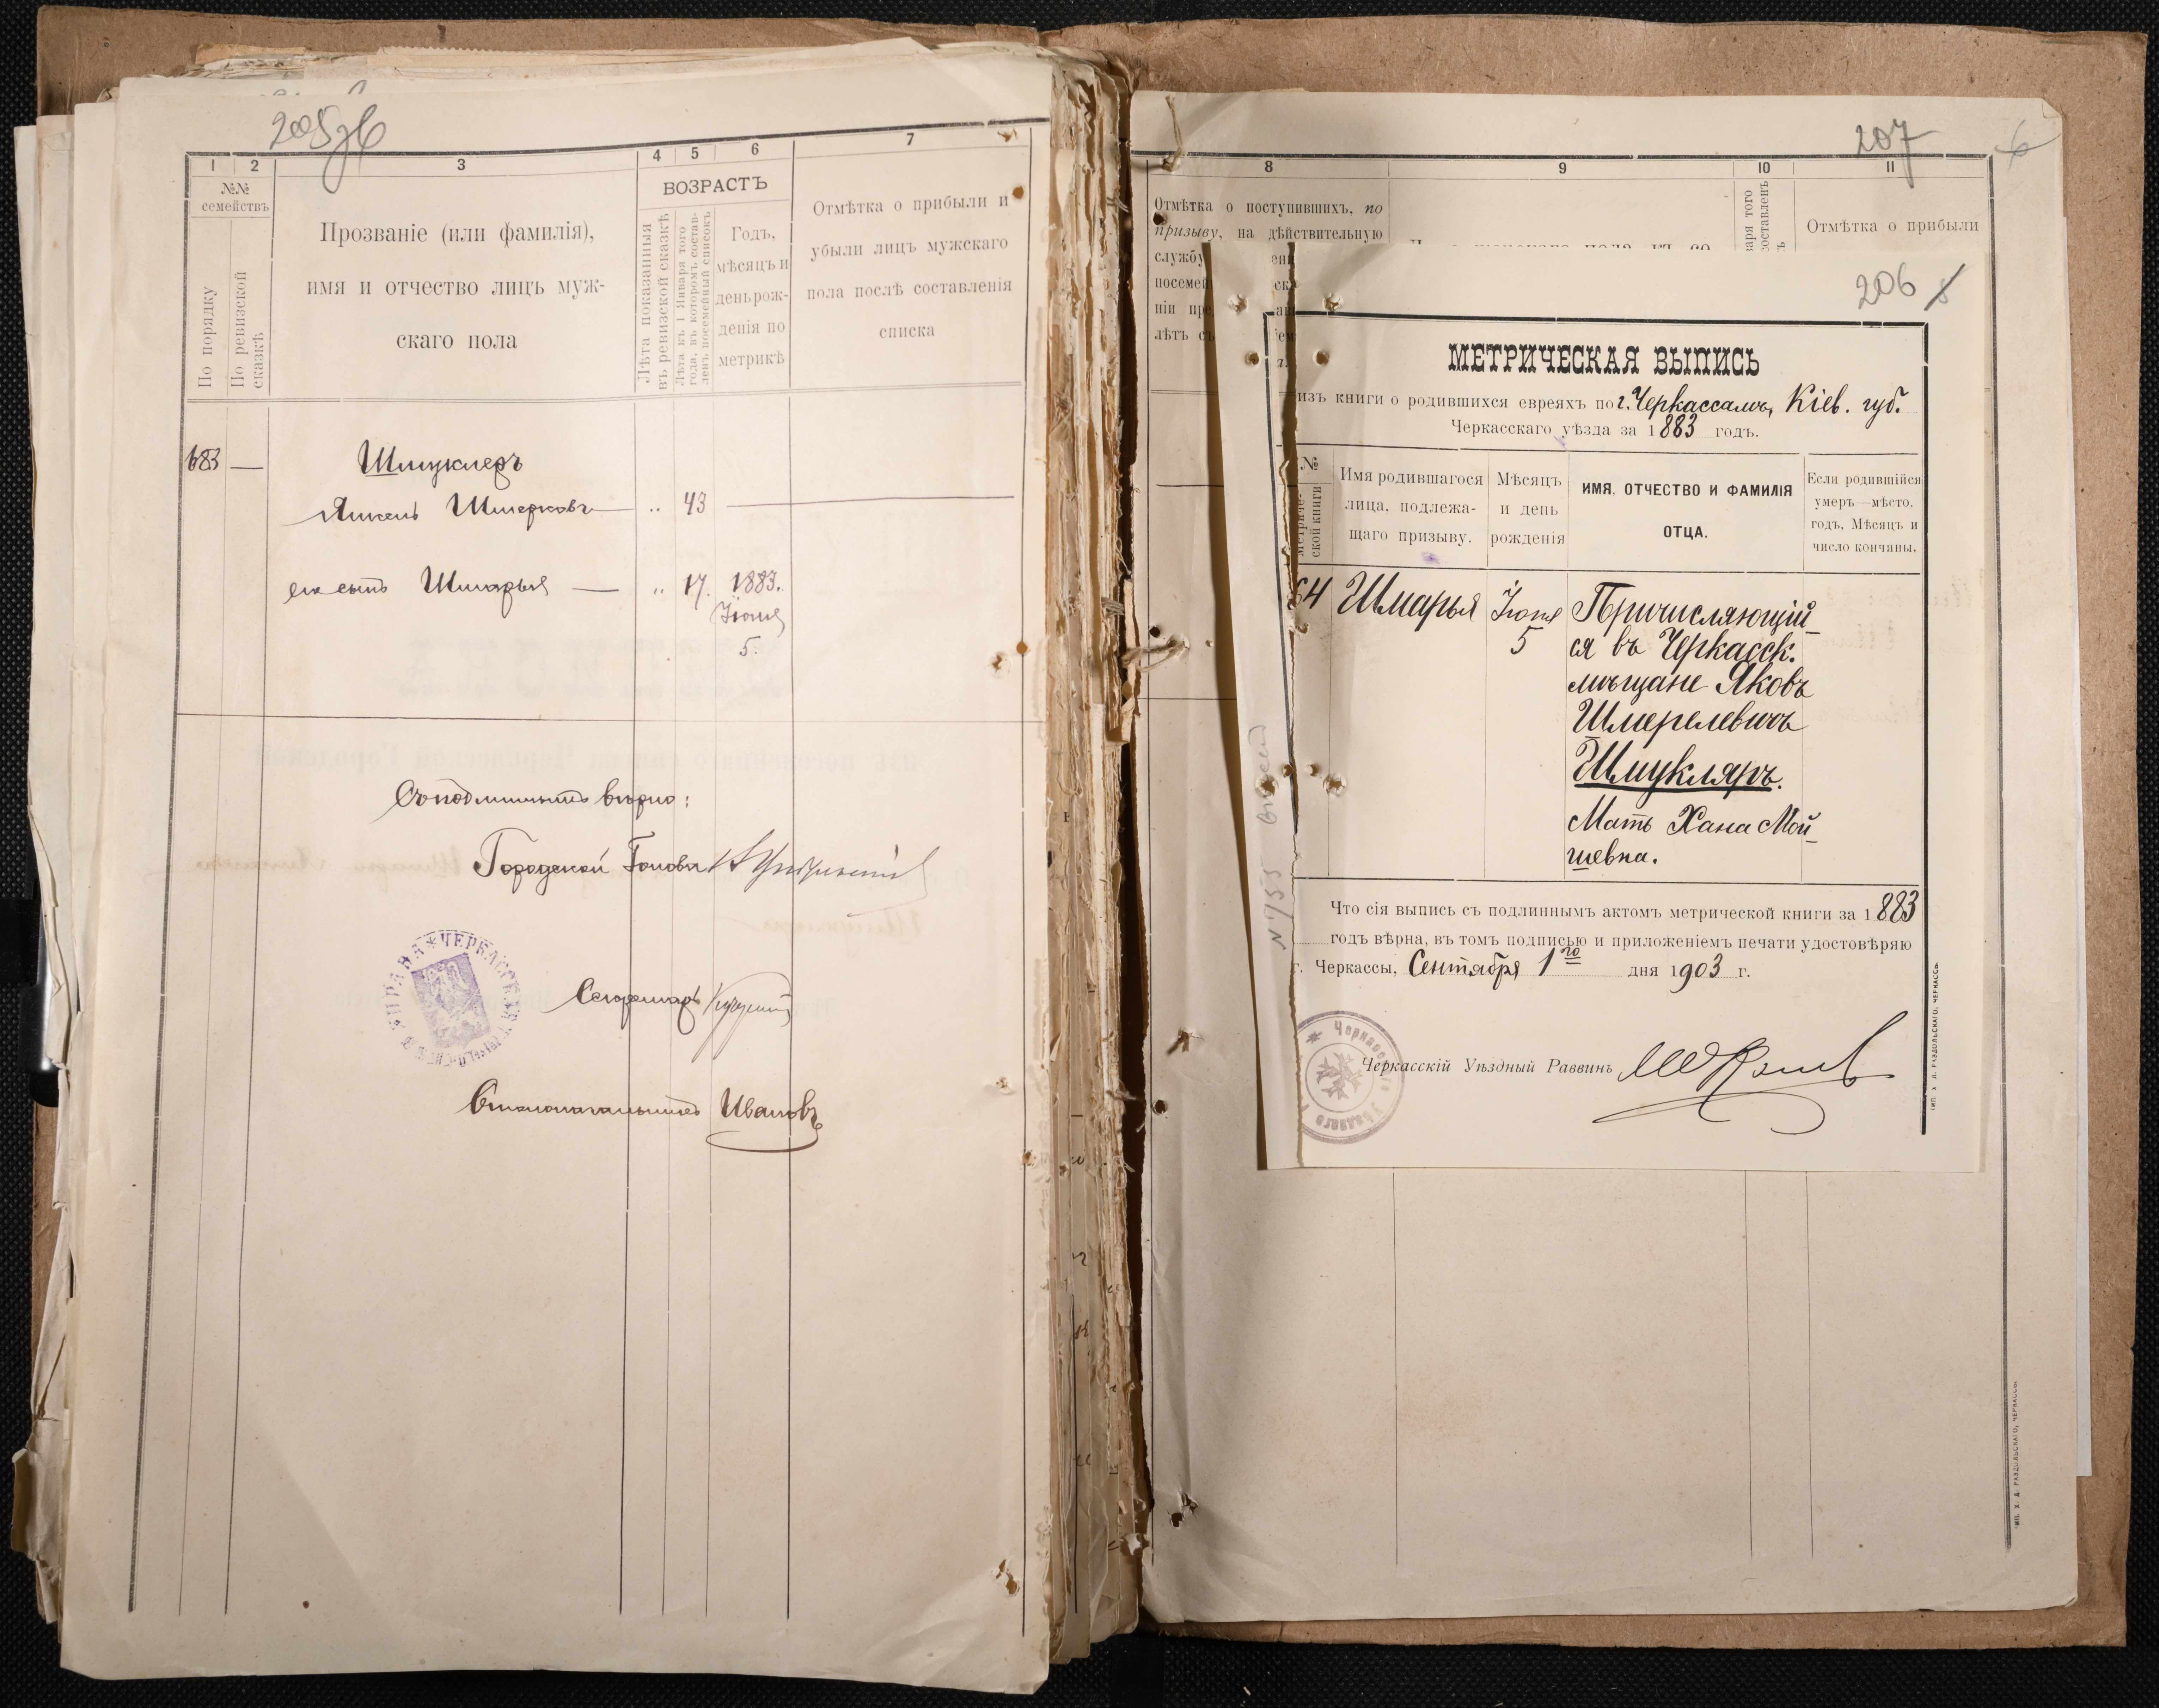 205 об
1 2 3 4 5 6 7
№№
семействъ
По порядку
По ревизской
сказкѣ
Прозваніе (или фамилія),
имя и отчество лицъ муж-
скаго пола
ВОЗРАСТЪ
Лѣта показанныя
въ ревизской сказкѣ
Лѣта къ 1 Января того
года, въ которомъ состав-
ленъ посемейный списокъ
Годъ,
мѣсяцъ и
день рож-
денія по
метрикѣ
Отмѣтка о прибыли и
убыли лицъ мужскаго
пола послѣ составленія
списка
683 —
Шмуклеръ
Янкель Шмерковъ — " 43 —
его сынъ Шмарья — " 17. 1883.
Іюня
5.
Съ подлиннымъ вѣрно:
Городской Голова
Секретарь
Столоначальникъ Ивановъ
207
6
8 9 10 11
Отмѣтка о поступившихъ, по
призыву, на дѣйствительную
службу
посемей
ніи пре
лѣтъ съ
аря того
составленъ
Отмѣтка о прибыли
206
МЕТРИЧЕСКАЯ ВЫПИСЬ
изъ книги о родившихся евреяхъ по г. Черкассамъ, Кіев. губ.
Черкасскаго уѣзда за 1883 годъ.
№
метриче-
ской книги
Имя родившагося
лица, подлежа-
щаго призыву.
Мѣсяцъ
и день
рожденія
ИМЯ, ОТЧЕСТВО И ФАМИЛІЯ
ОТЦА.
Если родившійся
умеръ—мѣсто,
годъ, Мѣсяцъ и
число кончины.
64 Шмарья Іюня 5
Причисляющій-
ся въ Черкасск.
мѣщане Яковъ
Шмерелевичъ
Шмукляръ.
Мать Хана Мой-
шевна.
Что сія выпись съ подлиннымъ актомъ метрической книги за 1883
годъ вѣрна, въ томъ подписью и приложеніемъ печати удостовѣряю
г. Черкассы, Сентября 1го дня 1903 г.
Черкасскій Уѣздный Раввинъ
ТИП. Х. Д. РАЗДОЛЬСКАГО, ЧЕРКАССЫ.
ТИП. Х. Д. РАЗДОЛЬСКАГО, ЧЕРКАССЫ.